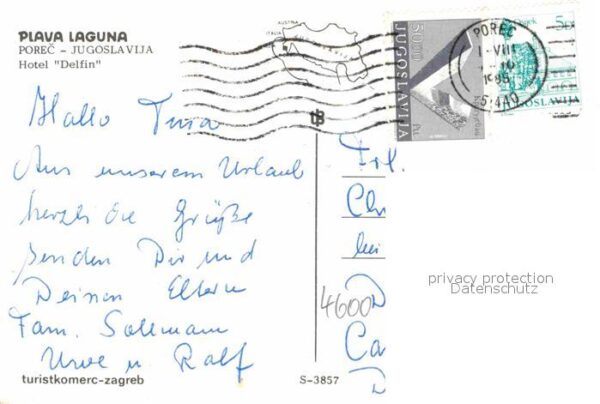 PLAVA LAGUNA
POREČ – JUGOSLAVIJA
Hotel "Delfin"
AUSTRIA
ITALIA
POREČ
1-VIII
1986
51440
5000
JUGOSLAVIJA
5D
JUGOSLAVIJA
Hallo
Aus unserem Urlaub
herzliche Grüße
senden Dir und
Deinen Eltern
Fam. Sallmann
Uwe u. Ralf
Frl.
Ch
bei
4600 D
Ca
D
privacy protection
Datenschutz
turistkomerc-zagreb
S-3857